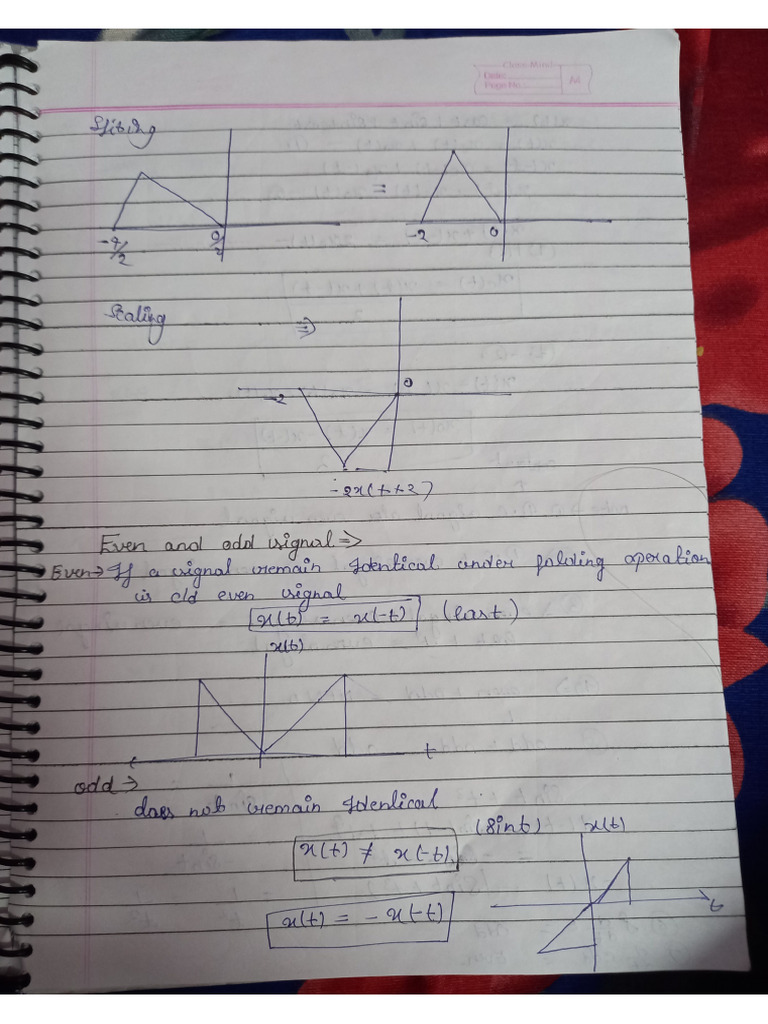 Class Mind
Date:
Page No.
Sfiting
=
-4/2 0/2 -2 0
Scaling ⇒
0
-2
-2x(t+2)
Even and odd signal ⇒
Even → If a signal remain Identical under folding operation
is c/d even signal
x(t) = x(-t) (cost)
x(t)
t
odd →
does not remain Identical
(sint) x(t)
x(t) ≠ x(-t).
t
x(t) = -x(-t)